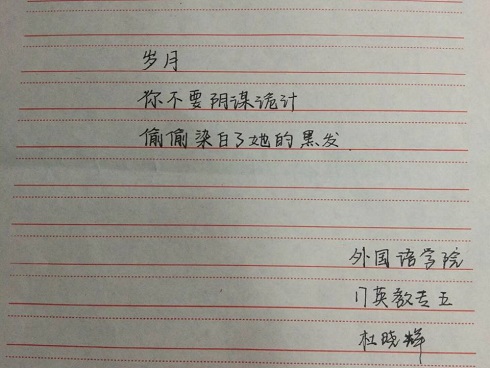 岁月
你不要阴谋诡计
偷偷染白了她的黑发
外国语学院
17英教专五
杜晓辉